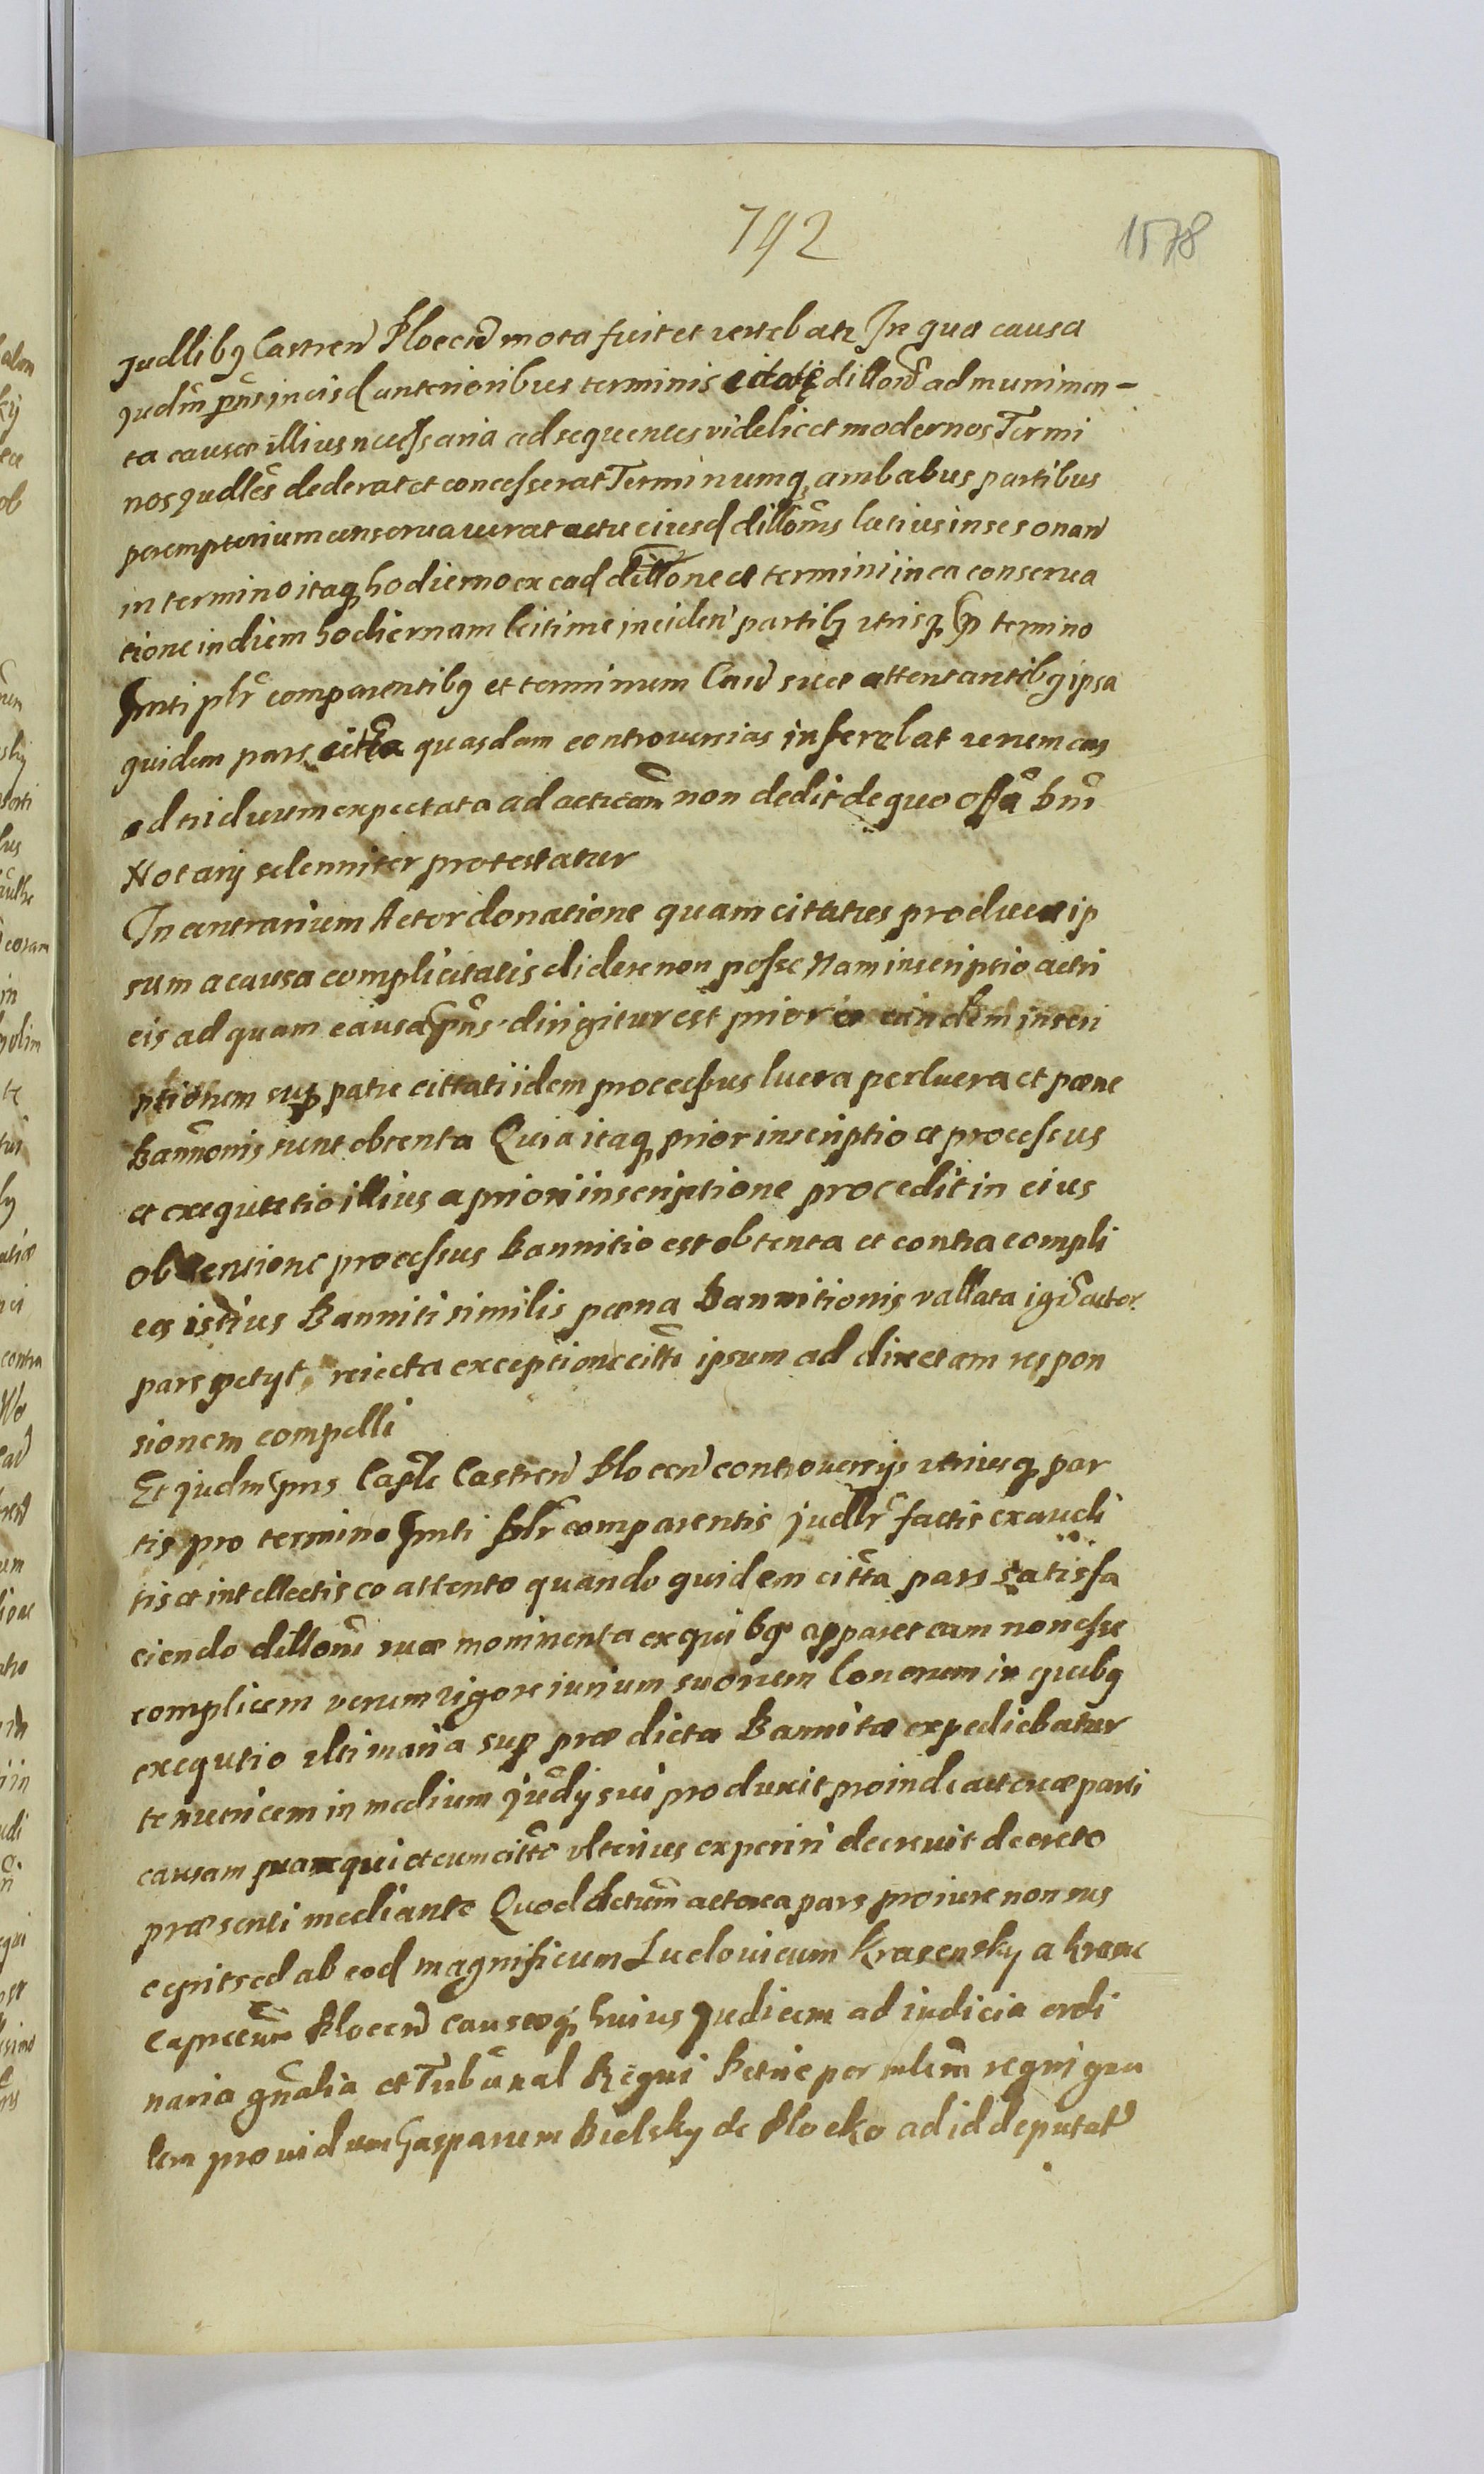 792
1578
Judlibq Castren Plocen mota fuit et vertebatr In qua causa
Judm pns in eisd anterioribus terminis citatę dillonē ad munimen-
ta causæ illius necessaria ad sequentes videlicet modernos Termi
nos Judles dederat et concesserat Terminumq ambabus partibus
peremptorium conservaverat actu eiusd dillonis latius in se sonan
in termino itaq hodierno ex ead dillone et termini in ea conserva
tione in diem hodiernam leitime inciden partibq utrisq p termino
pnti plr comparentibq et terminum Caus suæ attentantibq ipsa
quidem pars citta quasdam controversias inferebat verum eas
ad triduum expectata ad acticam non dedit de quo offa bni
Notarij solenniter protestatur
In contrarium Actor donatione quam citatus producat ip
sum a causa complicitatis elidere non posse Nam inscriptio actri
cis ad quam causa pns dirigitur est prior in eundem inscri
ptionem sup patre cittati idem processus lucra perlucra et pæne
bannonis sunt obtenta Quia itaq prior inscriptio et processus
et exequtetio illius a priori inscriptione procedit in eius
obtentione processus bannitio est obtenta et contra compli
ces istius banniti similis pæna bannitionis vallata igr actor
pars petyt, reiecta exceptione citti ipsum ad directam respon
sionem compelli
Et judm pns Caple Castren Plocen controversijs utriusq par
tis pro termino pnti plr comparentis judlr factis exaudi
tis et intellectis eo attento quando quidem citta pars satisfa
ciendo dilloni suæ monimenta ex quibq apparet eam non esse
complicem verum rigore iurium suorum bonorum in quibq
exequtio ultimaria sup prædicta bannita expediebatur
tenutricem in medium judij sui produxit proinde actoreæ parti
causam suam qui et cum citto ulterius experiri decrevit decreto
præsenti mediante Quod dictum actorea pars pro iure non sus
cepit sed ab eod magnificum Ludovicum Krasensky a Krasne
Capneum Plocen causæq huius Judicem ad iudicia ordi
naria gnalia et Tribunal Regni petrie per mlem regni gna
lem providum Gasparum Bielsky de Plocko ad id deputat